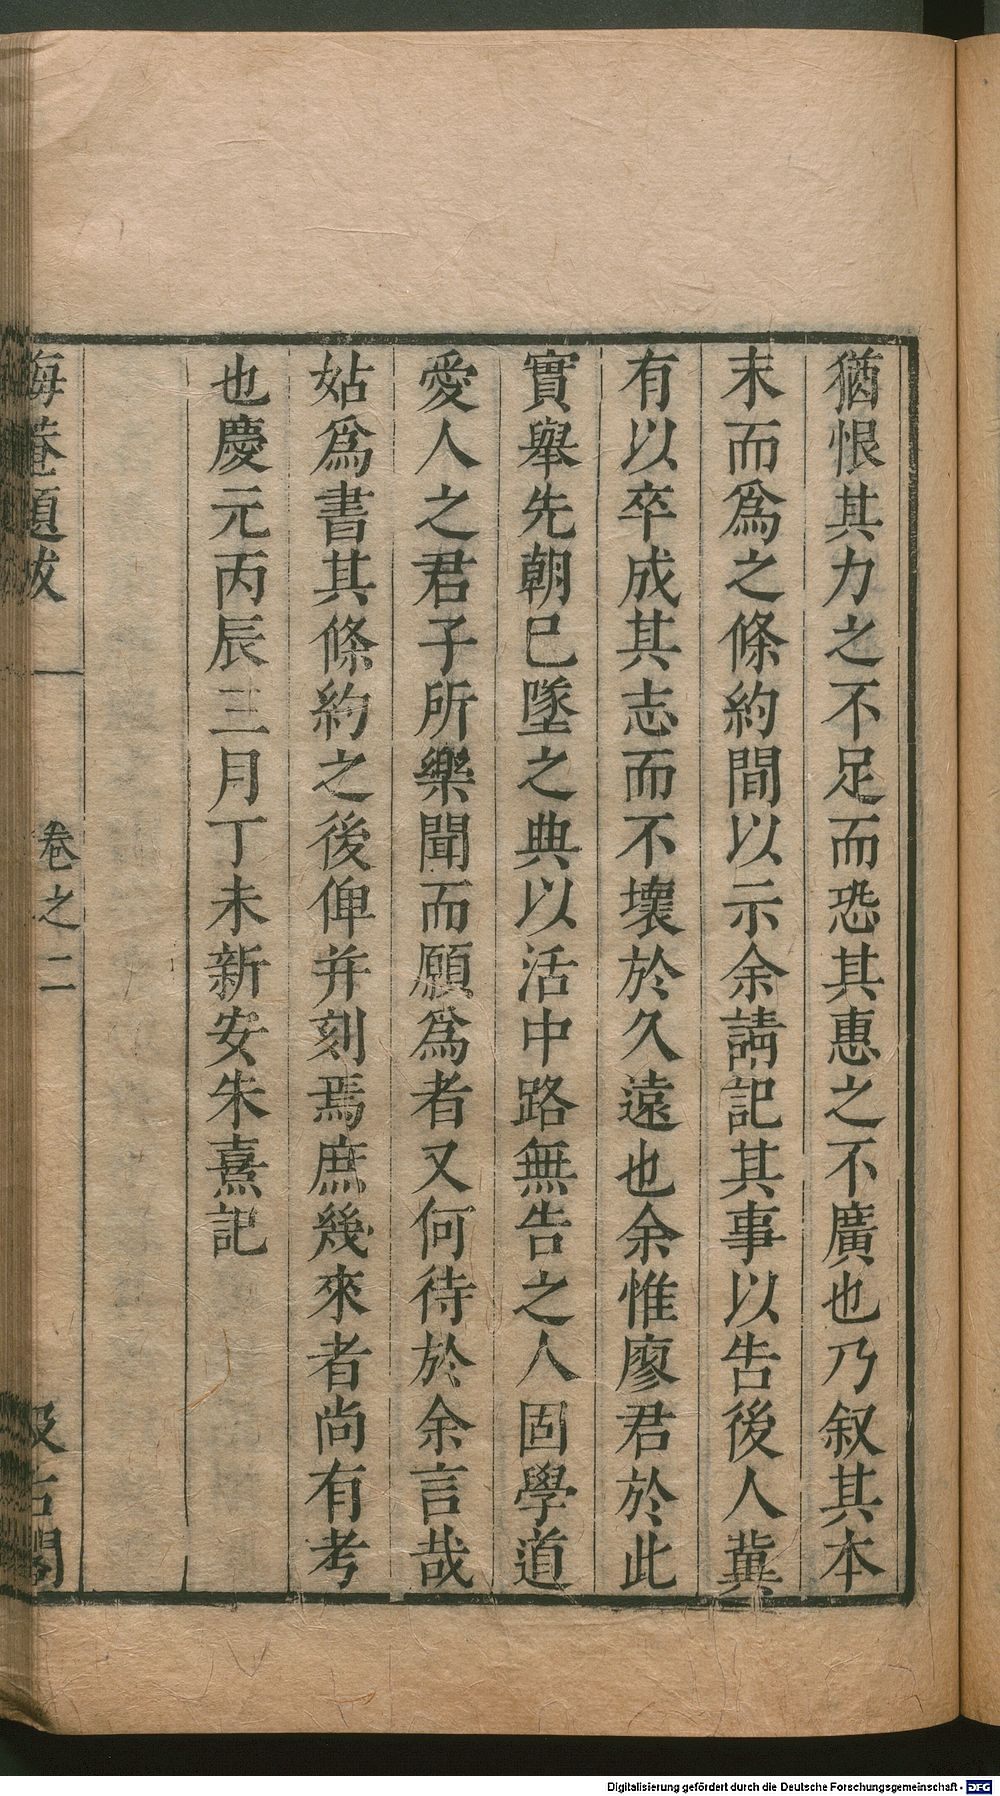 猶恨其力之不足而恐其惠之不廣也乃叙其本
末而爲之條約間以示余請記其事以告後人冀
有以卒成其志而不壞於久遠也余惟廖君於此
實舉先朝已墜之典以活中路無告之人固學道
愛人之君子所樂聞而願爲者又何待於余言哉
姑爲書其條約之後俾并刻焉庶幾來者尚有考
也慶元丙辰三月丁未新安朱熹記
晦菴題跋 卷之二 汲古閣
Digitalisierung gefördert durch die Deutsche Forschungsgemeinschaft - DFG